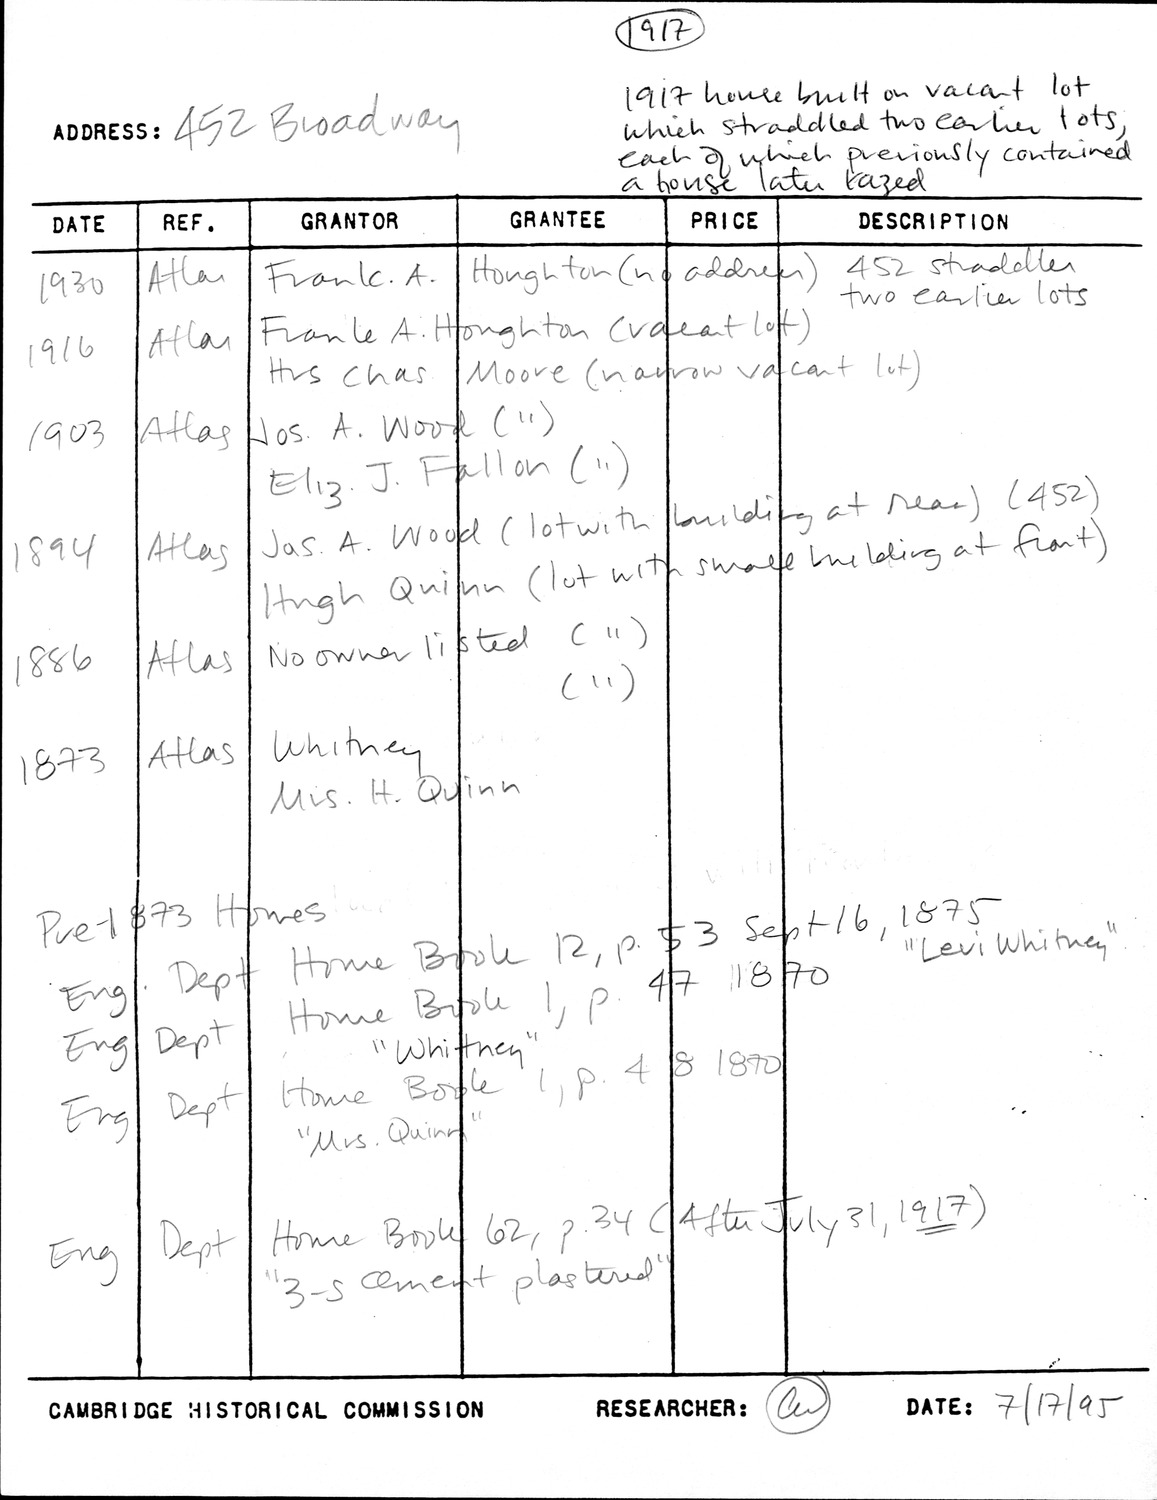 1917
1917 house built on vacant lot
which straddled two earlier lots,
each of which previously contained
a house later razed
ADDRESS: 452 Broadway
DATE REF. GRANTOR GRANTEE PRICE DESCRIPTION
1930 Atlas Frank. A. Houghton (no address) 452 straddles
two earlier lots
1916 Atlas Frank A. Houghton (vacant lot)
Mrs Chas. Moore (narrow vacant lot)
1903 Atlas Jos. A. Wood (")
Eliz. J. Fallon (")
1894 Atlas Jas. A. Wood (lot with building at rear) (452)
Hugh Quinn (lot with small building at front)
1886 Atlas No owner listed (")
(")
1873 Atlas Whitney
Mrs. H. Quinn
Pre-1873 Homes
Eng. Dept Home Book 12, p. 53 Sept 16, 1875
"Levi Whitney"
Eng Dept Home Book 1, p. 47 1870
"Whitney"
Eng Dept Home Book 1, p. 48 1870
"Mrs. Quinn"
Eng Dept Home Book 62, p. 34 (After July 31, 1917)
"3-s cement plastered"
CAMBRIDGE HISTORICAL COMMISSION RESEARCHER: DATE: 7/17/95